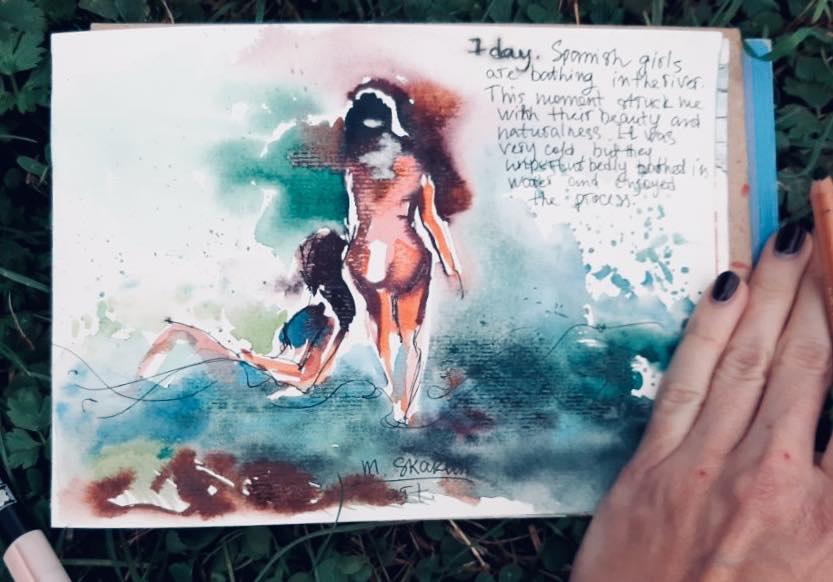 1 day. Spanish girls
are bathing in the river.
This moment struck me
with their beauty and
naturalness. It was
very cold but they
bathed in
water and enjoyed
the process.
M. SKAKUN
art